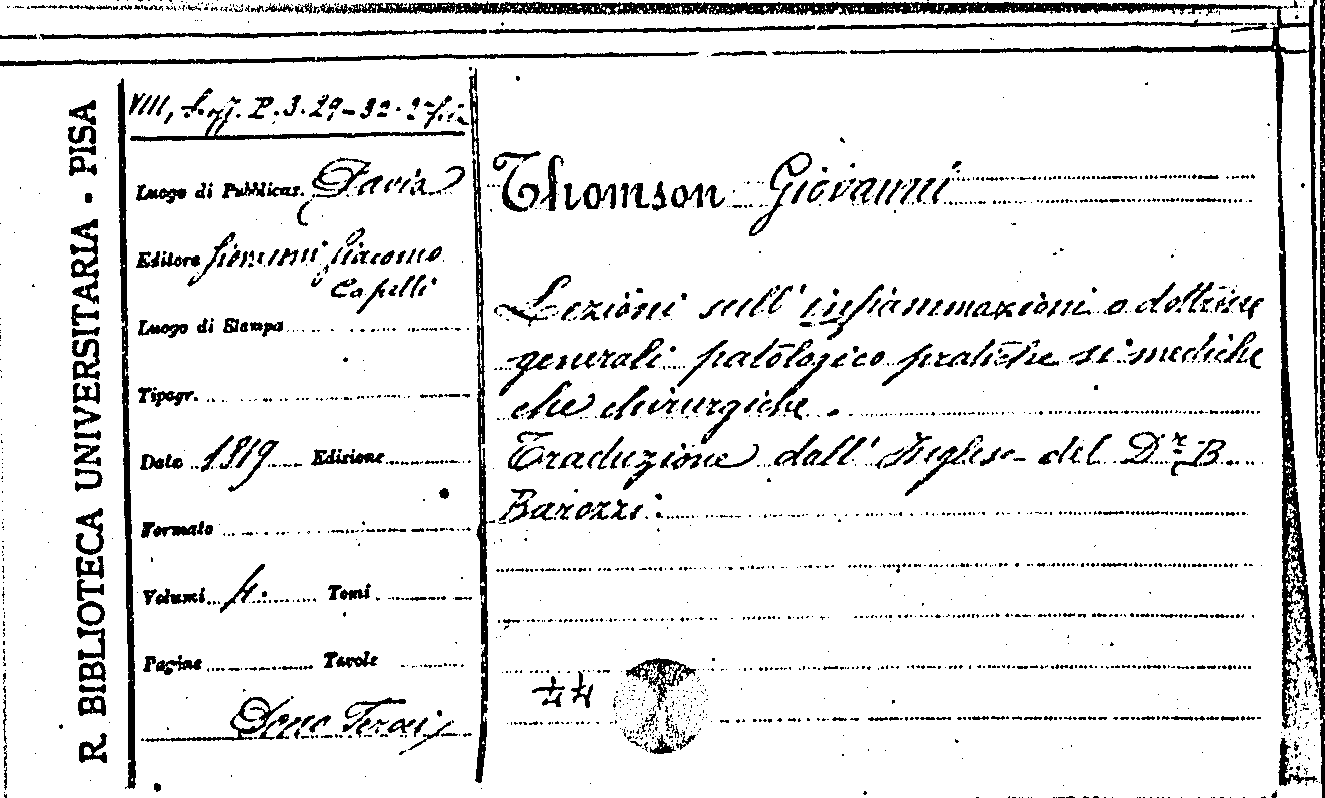 R. BIBLIOTECA UNIVERSITARIA - PISA
VIII, P. 3. 29-32.
Luogo di Pubblicaz. Pavia
Editore Giacomo
Capelli
Luogo di Stampa
Tipogr.
Data 1819 Edizione
Formato
Volumi 4. Tomi
Pagine Tavole
Dono
Thomson Giovanni
Lezioni sull' infiammazioni o dottrine
generali patologico pratiche si mediche
che chirurgiche.
Traduzione dall' Inglese del Dr. B.
Barozzi.
44